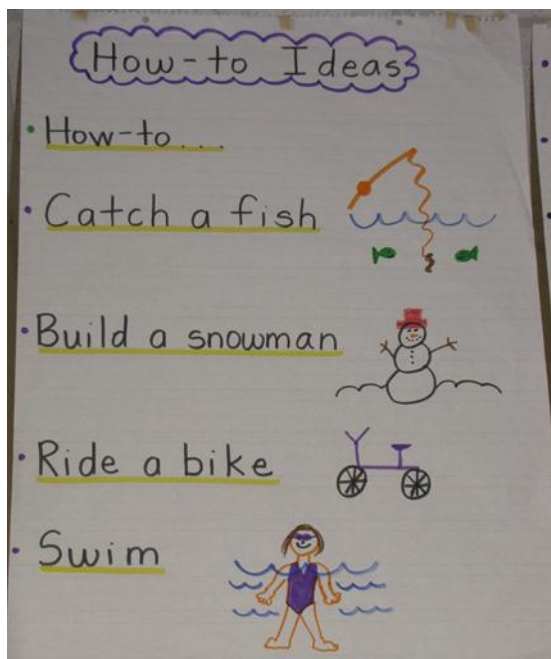 How-to Ideas
• How-to...
• Catch a fish
• Build a snowman
• Ride a bike
• Swim